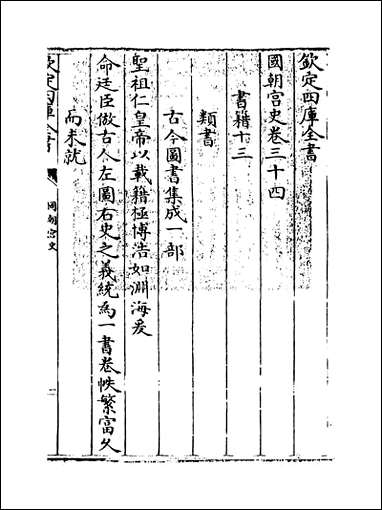 欽定四庫全書
國朝宮史卷三十四
書籍十三
類書
古今圖書集成一部
聖祖仁皇帝以載籍極博浩如淵海爰
命廷臣倣古人左圖右史之義統為一書卷帙繁富久
而未就
欽定四庫全書
國朝宮史